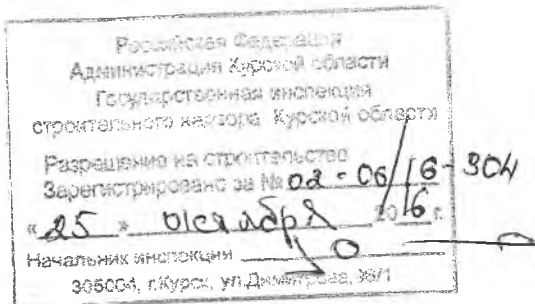 Российская Федерация
Администрация Курской области
Государственная инспекция
строительного надзора Курской области
Разрешение на строительство
Зарегистрировано за № 02-06/16-304
«25» октября 2016 г.
Начальник инспекции
305004, г.Курск, ул.Димитрова, 96/1